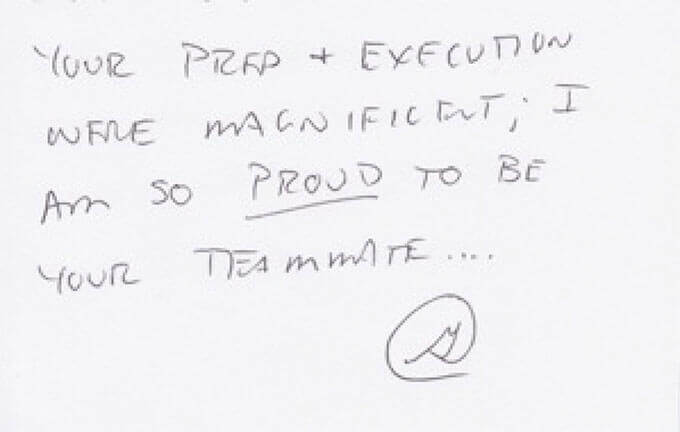 YOUR PREP + EXECUTION
WERE MAGNIFICENT; I
AM SO PROUD TO BE
YOUR TEAMMATE....